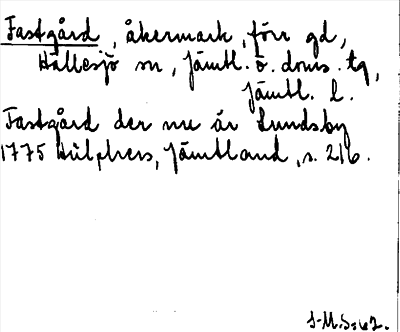 Fastgård, åkermark, förr gd,
Hällesjö sn, Jämtl. ö. doms. tg,
Jämtl. l.
Fastgård der nu är Lundsby
1775 Hülphers, Jämtland, s. 216.